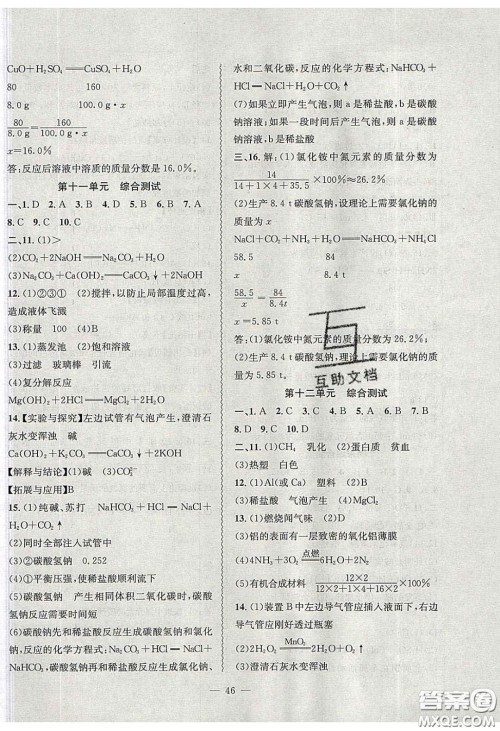 CuO+H₂SO₄══CuSO₄+H₂O
80 160
8.0 g 100.0 g·x
80/8.0 g=160/100.0 g·x
x=16.0%
答:反应后溶液中溶质的质量分数是16.0%。
第十一单元 综合测试
一、1.D 2.D 3.C 4.D 5.D 6.B 7.A
8.C 9.C 10.D
二、11.(1)>
(2)CO₂+2NaOH══Na₂CO₃+H₂O
(3)Na₂CO₃+Ca(OH)₂══CaCO₃↓+2NaOH
12.(1)②③① (2)搅拌,以防止局部温度过高,
造成液体飞溅
(3)称量 100 (4)B
13.(1)蒸发池 (2)饱和溶液
(3)过滤 玻璃棒 引流
(4)复分解反应
Mg(OH)₂+2HCl══MgCl₂+2H₂O
14.【实验与探究】左边试管有气泡产生,澄清石
灰水变浑浊 碱
Ca(OH)₂+K₂CO₃══CaCO₃↓+2KOH
【解释与结论】(1)碱 (2)CO₃²⁻
【拓展与应用】B
15.(1)纯碱、苏打 NaHCO₃+HCl══NaCl+
H₂O+CO₂↑
(2)同时全部注入试管中
(3)②碳酸氢钠 0.252
(4)①平衡压强,使稀盐酸能顺利滴下
②碳酸氢钠 产生相同体积二氧化碳时,碳酸
氢钠反应需要时间短
(6)碳酸钠先和稀盐酸反应生成碳酸氢钠和氯化
钠,反应的化学方程式:Na₂CO₃+HCl══NaCl+
NaHCO₃,碳酸氢钠再和稀盐酸反应生成氯化钠、
水和二氧化碳,反应的化学方程式:NaHCO₃+
HCl══NaCl+H₂O+CO₂↑
(7)如果立即产生气泡,则a是稀盐酸,b是碳酸
钠溶液;如果一段时间后产生气泡,则a是碳酸
钠溶液,b是稀盐酸
三、16.解:(1)氯化铵中氮元素的质量分数为
14/(14+1×4+35.5)×100%≈26.2%
(2)生产8.4 t碳酸氢钠,设理论上需要氯化钠的
质量为x
NaCl+CO₂+NH₃+H₂O══NaHCO₃↓+NH₄Cl
58.5 84
x 8.4 t
58.5/x=84/8.4t
x=5.85 t
答:(1)氯化铵中氮元素的质量分数为26.2%;
(2)生产8.4 t碳酸氢钠,理论上需要氯化钠的质
量为5.85 t。
第十二单元 综合测试
一、1.A 2.C 3.D 4.C 5.C 6.A 7.A
8.D 9.B 10.C
二、11.(1)CH₄ 乳化 (2)蛋白质 贫血
(3)热塑 白色
12.(1)Al(或Ca) 塑料 (2)D
(3)稀盐酸 气泡产生 (4)MgCl₂
13.(1)燃烧闻气味 (2)D
(3)铝的表面有一层致密的氧化铝薄膜
(4)4NH₃+3O₂ 点燃══ 2N₂+6H₂O
(5)有机合成材料 (12×2)/(12×2+1×4+16×2)×100%
14.(1)装置B中左边导气管应插入液面下,右边
导气管应刚好透过瓶塞
(2)2H₂O₂ MnO₂══ 2H₂O+O₂↑
(3)澄清石灰水变浑浊
46
互
互助文档
答案圈
MXQE.COM